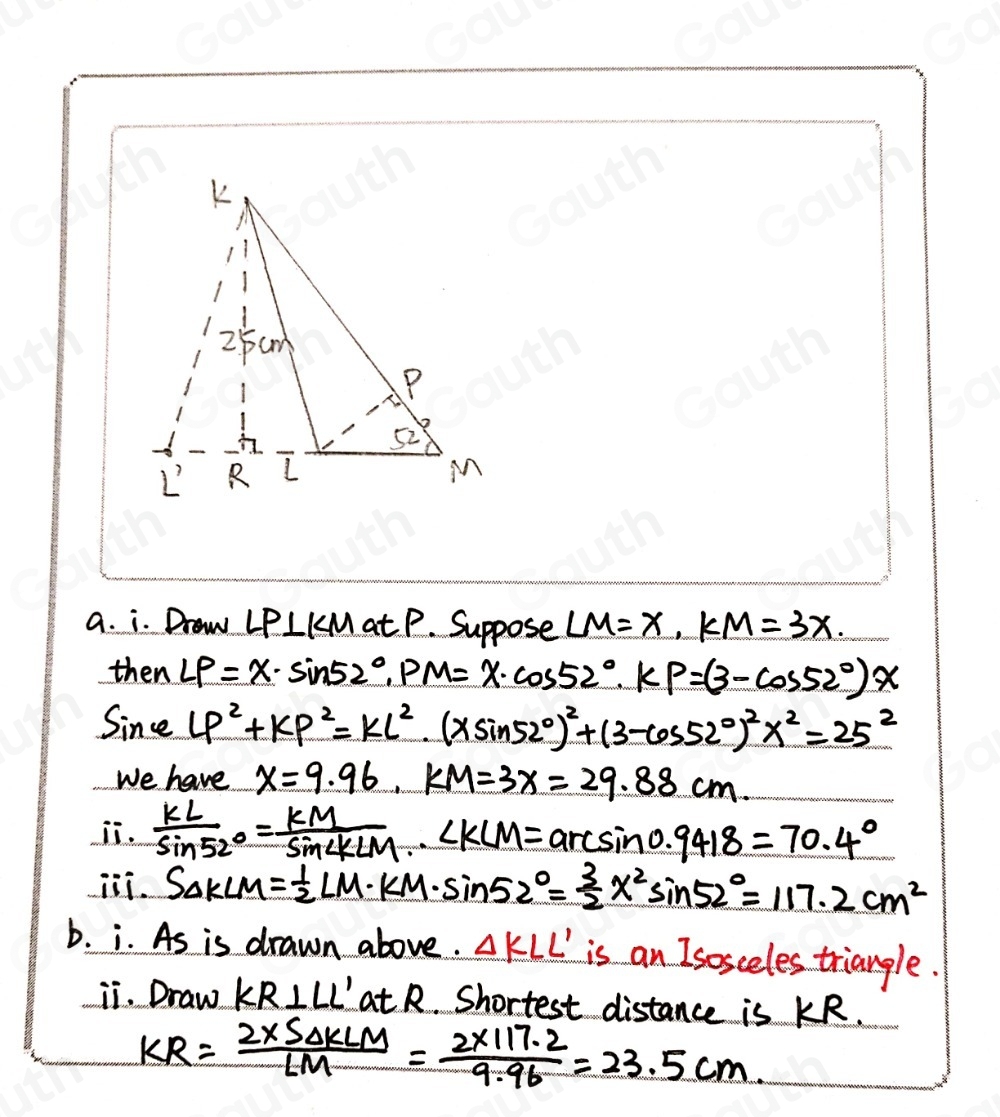 K
25cm
P
52°
L' R L M
a. i. Draw LP⊥KM at P. Suppose LM=x, KM=3x.
then LP=x·sin52°, PM=x·cos52°. KP=(3-cos52°)x
Since LP²+KP²=KL². (xsin52°)²+(3-cos52°)²x²=25²
we have x=9.96, KM=3x=29.88 cm.
ii. KL/sin52°=KM/sin∠KLM. ∠KLM=arcsin0.9418=70.4°
iii. S△KLM=1/2 LM·KM·sin52°=3/2 x²sin52°=117.2 cm²
b. i. As is drawn above. △KLL' is an Isosceles triangle.
ii. Draw KR⊥LL' at R. Shortest distance is KR.
KR=2×S△KLM/LM=2×117.2/9.96=23.5cm.
Gauth